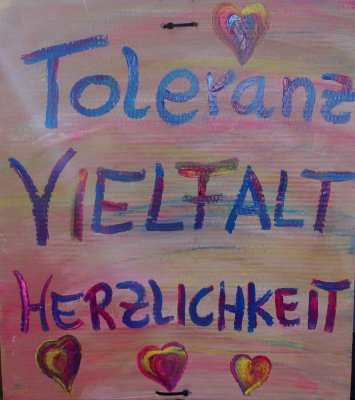 Toleranz
VIELFALT
HERZLICHKEIT